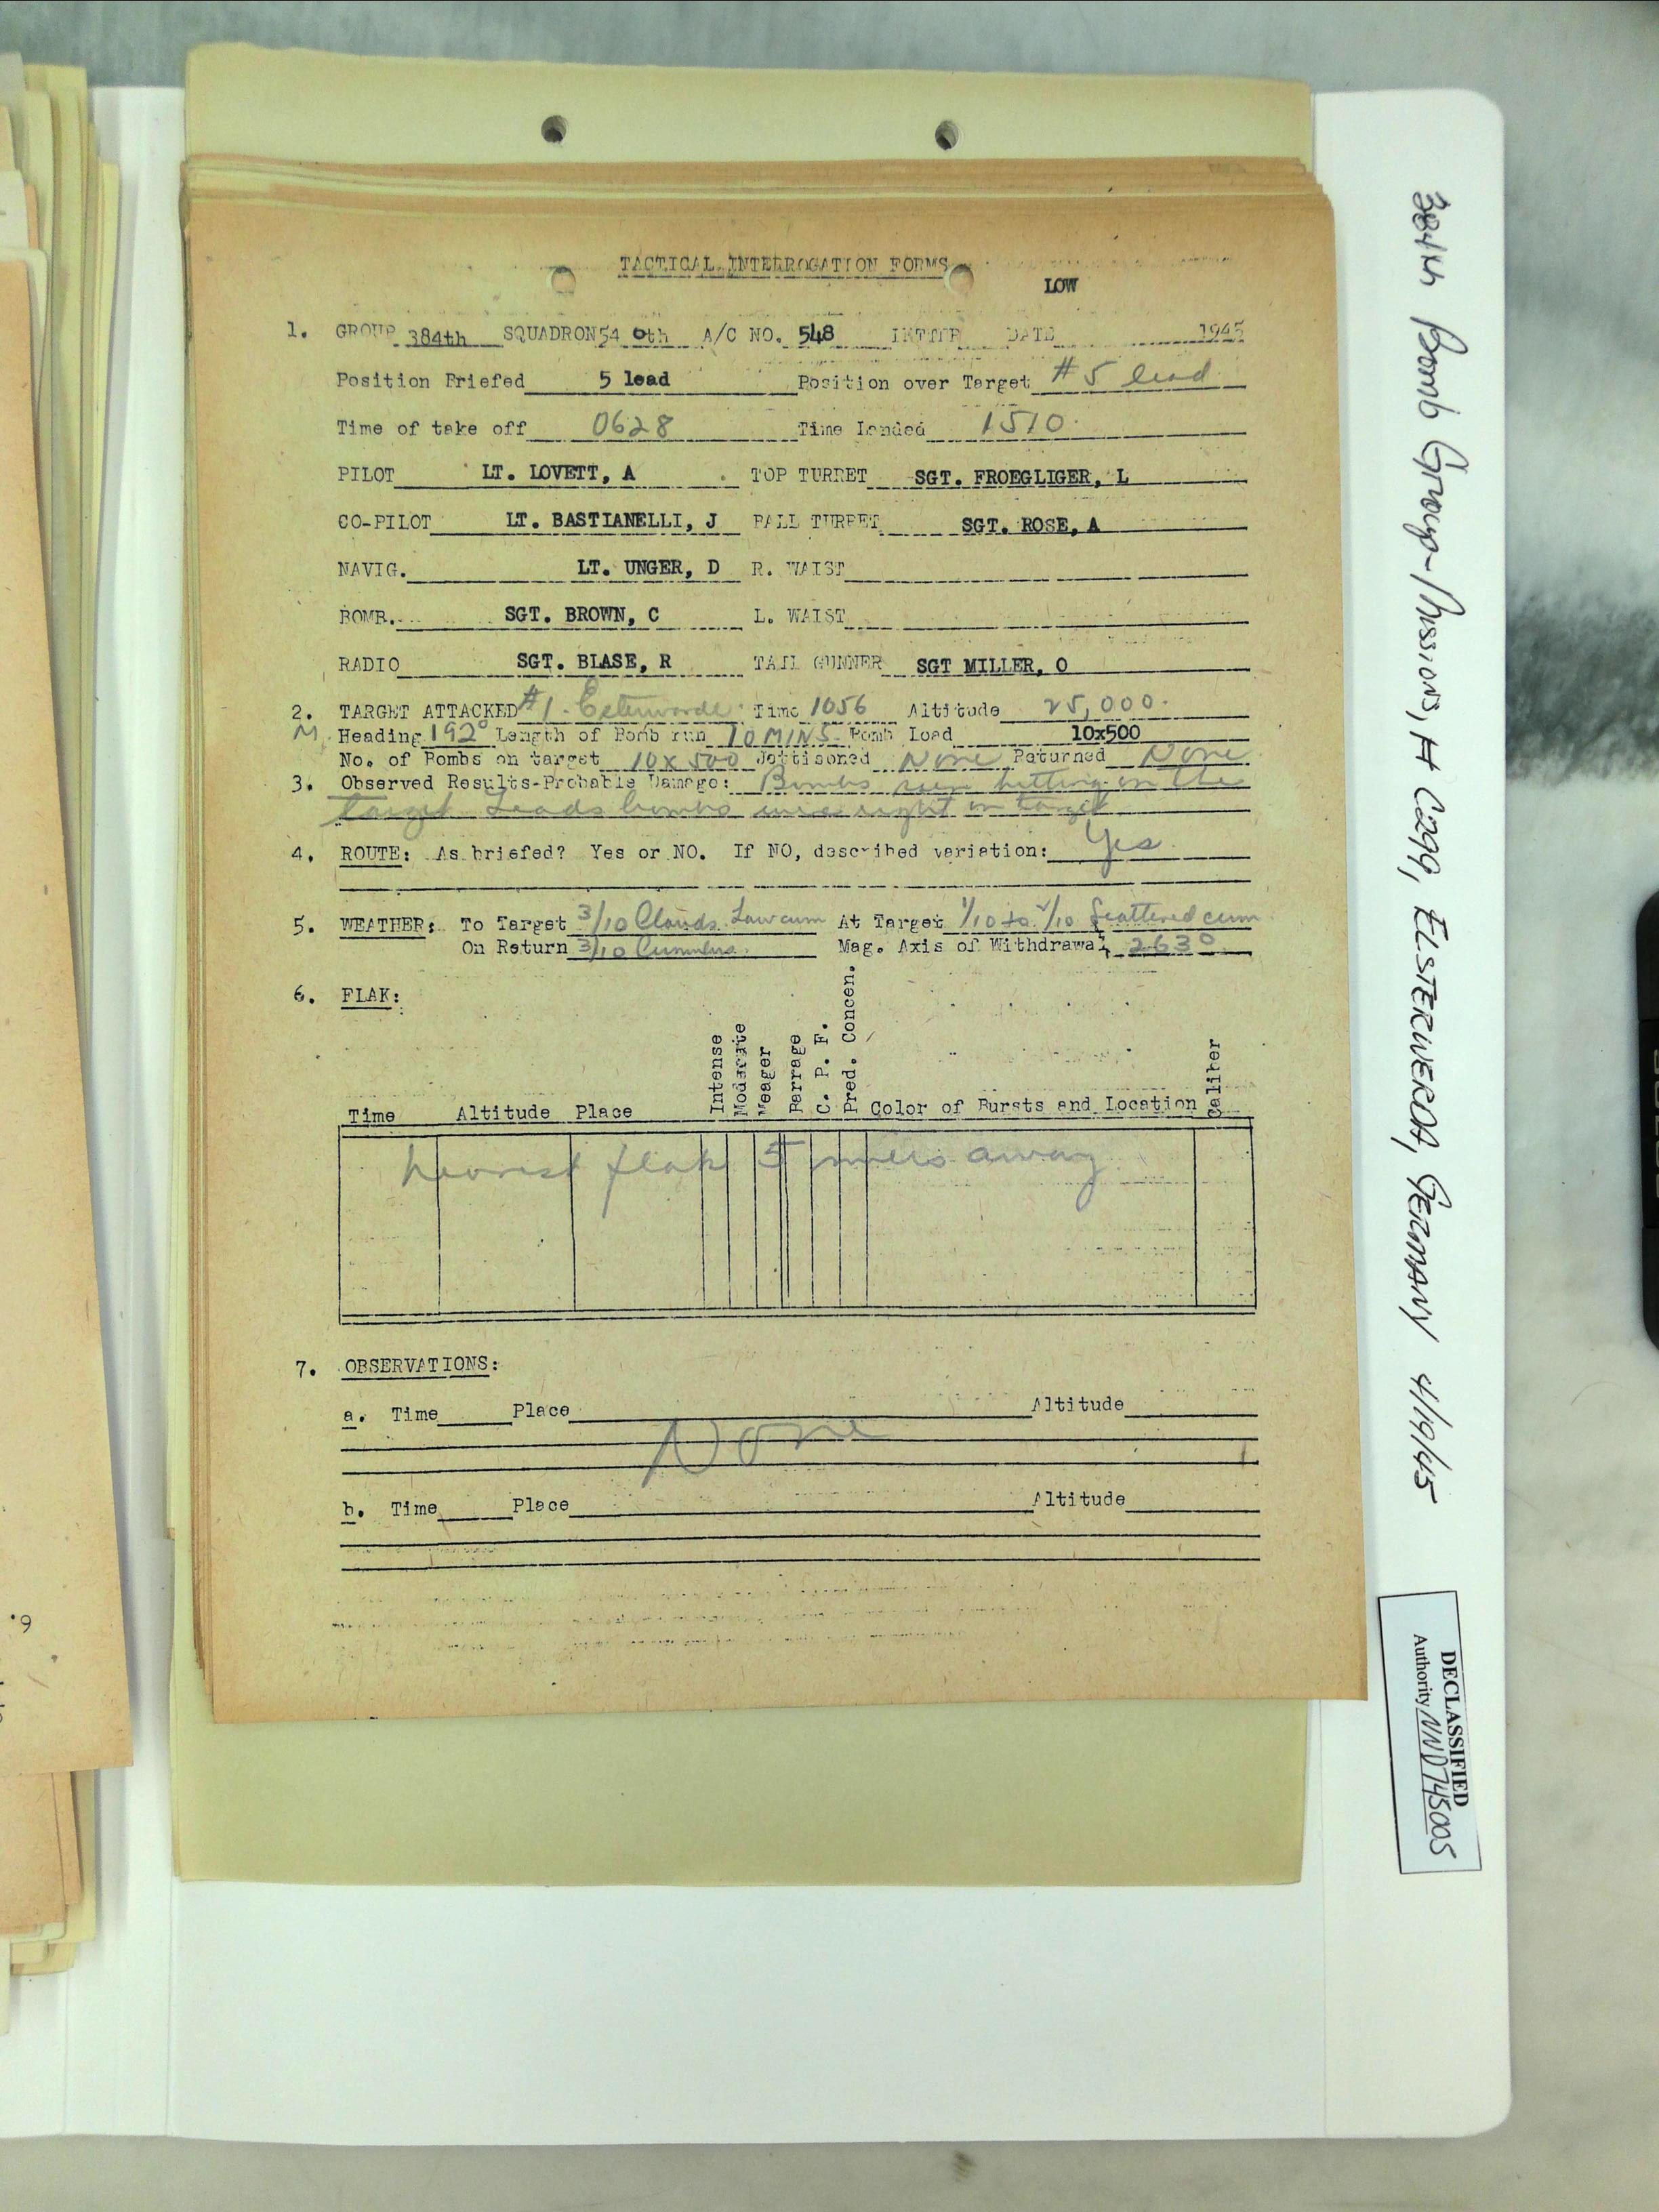 TACTICAL INTERROGATION FORMS
LOW
1. GROUP 384th SQUADRON 540th A/C NO. 548 LETTER DATE 1945
Position Briefed 5 lead Position over Target #5 lead
Time of take off 0628 Time Landed 1510
PILOT LT. LOVETT, A TOP TURRET SGT. FROEGLIGER, L
CO-PILOT LT. BASTIANELLI, J BALL TURRET SGT. ROSE, A
NAVIG. LT. UNGER, D R. WAIST
BOMB. SGT. BROWN, C L. WAIST
RADIO SGT. BLASE, R TAIL GUNNER SGT MILLER, O
2. TARGET ATTACKED #1 - Time 1056 Altitude 25,000
M. Heading 192° Length of Bomb run 10 MINS Bomb Load 10x500
No. of Bombs on target 10x500 Jettisoned None Returned None
3. Observed Results-Probable Damage: Bombs seen hitting on the
target Leads bombs were right on target
4. ROUTE: As briefed? Yes or NO. If NO, described variation: Yes
5. WEATHER: To Target 3/10 Clouds. Low cum At Target 1/10 to /10 Scattered cum
On Return 3/10 Cumulus Mag. Axis of Withdrawal 263°
6. FLAK:
Time Altitude Place Intense Moderate Meager Barrage C. P. F. Pred. Concen. Color of Bursts and Location Caliber
nearest flak 5 miles away
7. OBSERVATIONS:
a. Time Place Altitude
None
b. Time Place Altitude
384th Bomb Group-Missions, H C299, ELSTERWERDA, GERMANY 4/19/45
DECLASSIFIED
Authority NND745005
6.